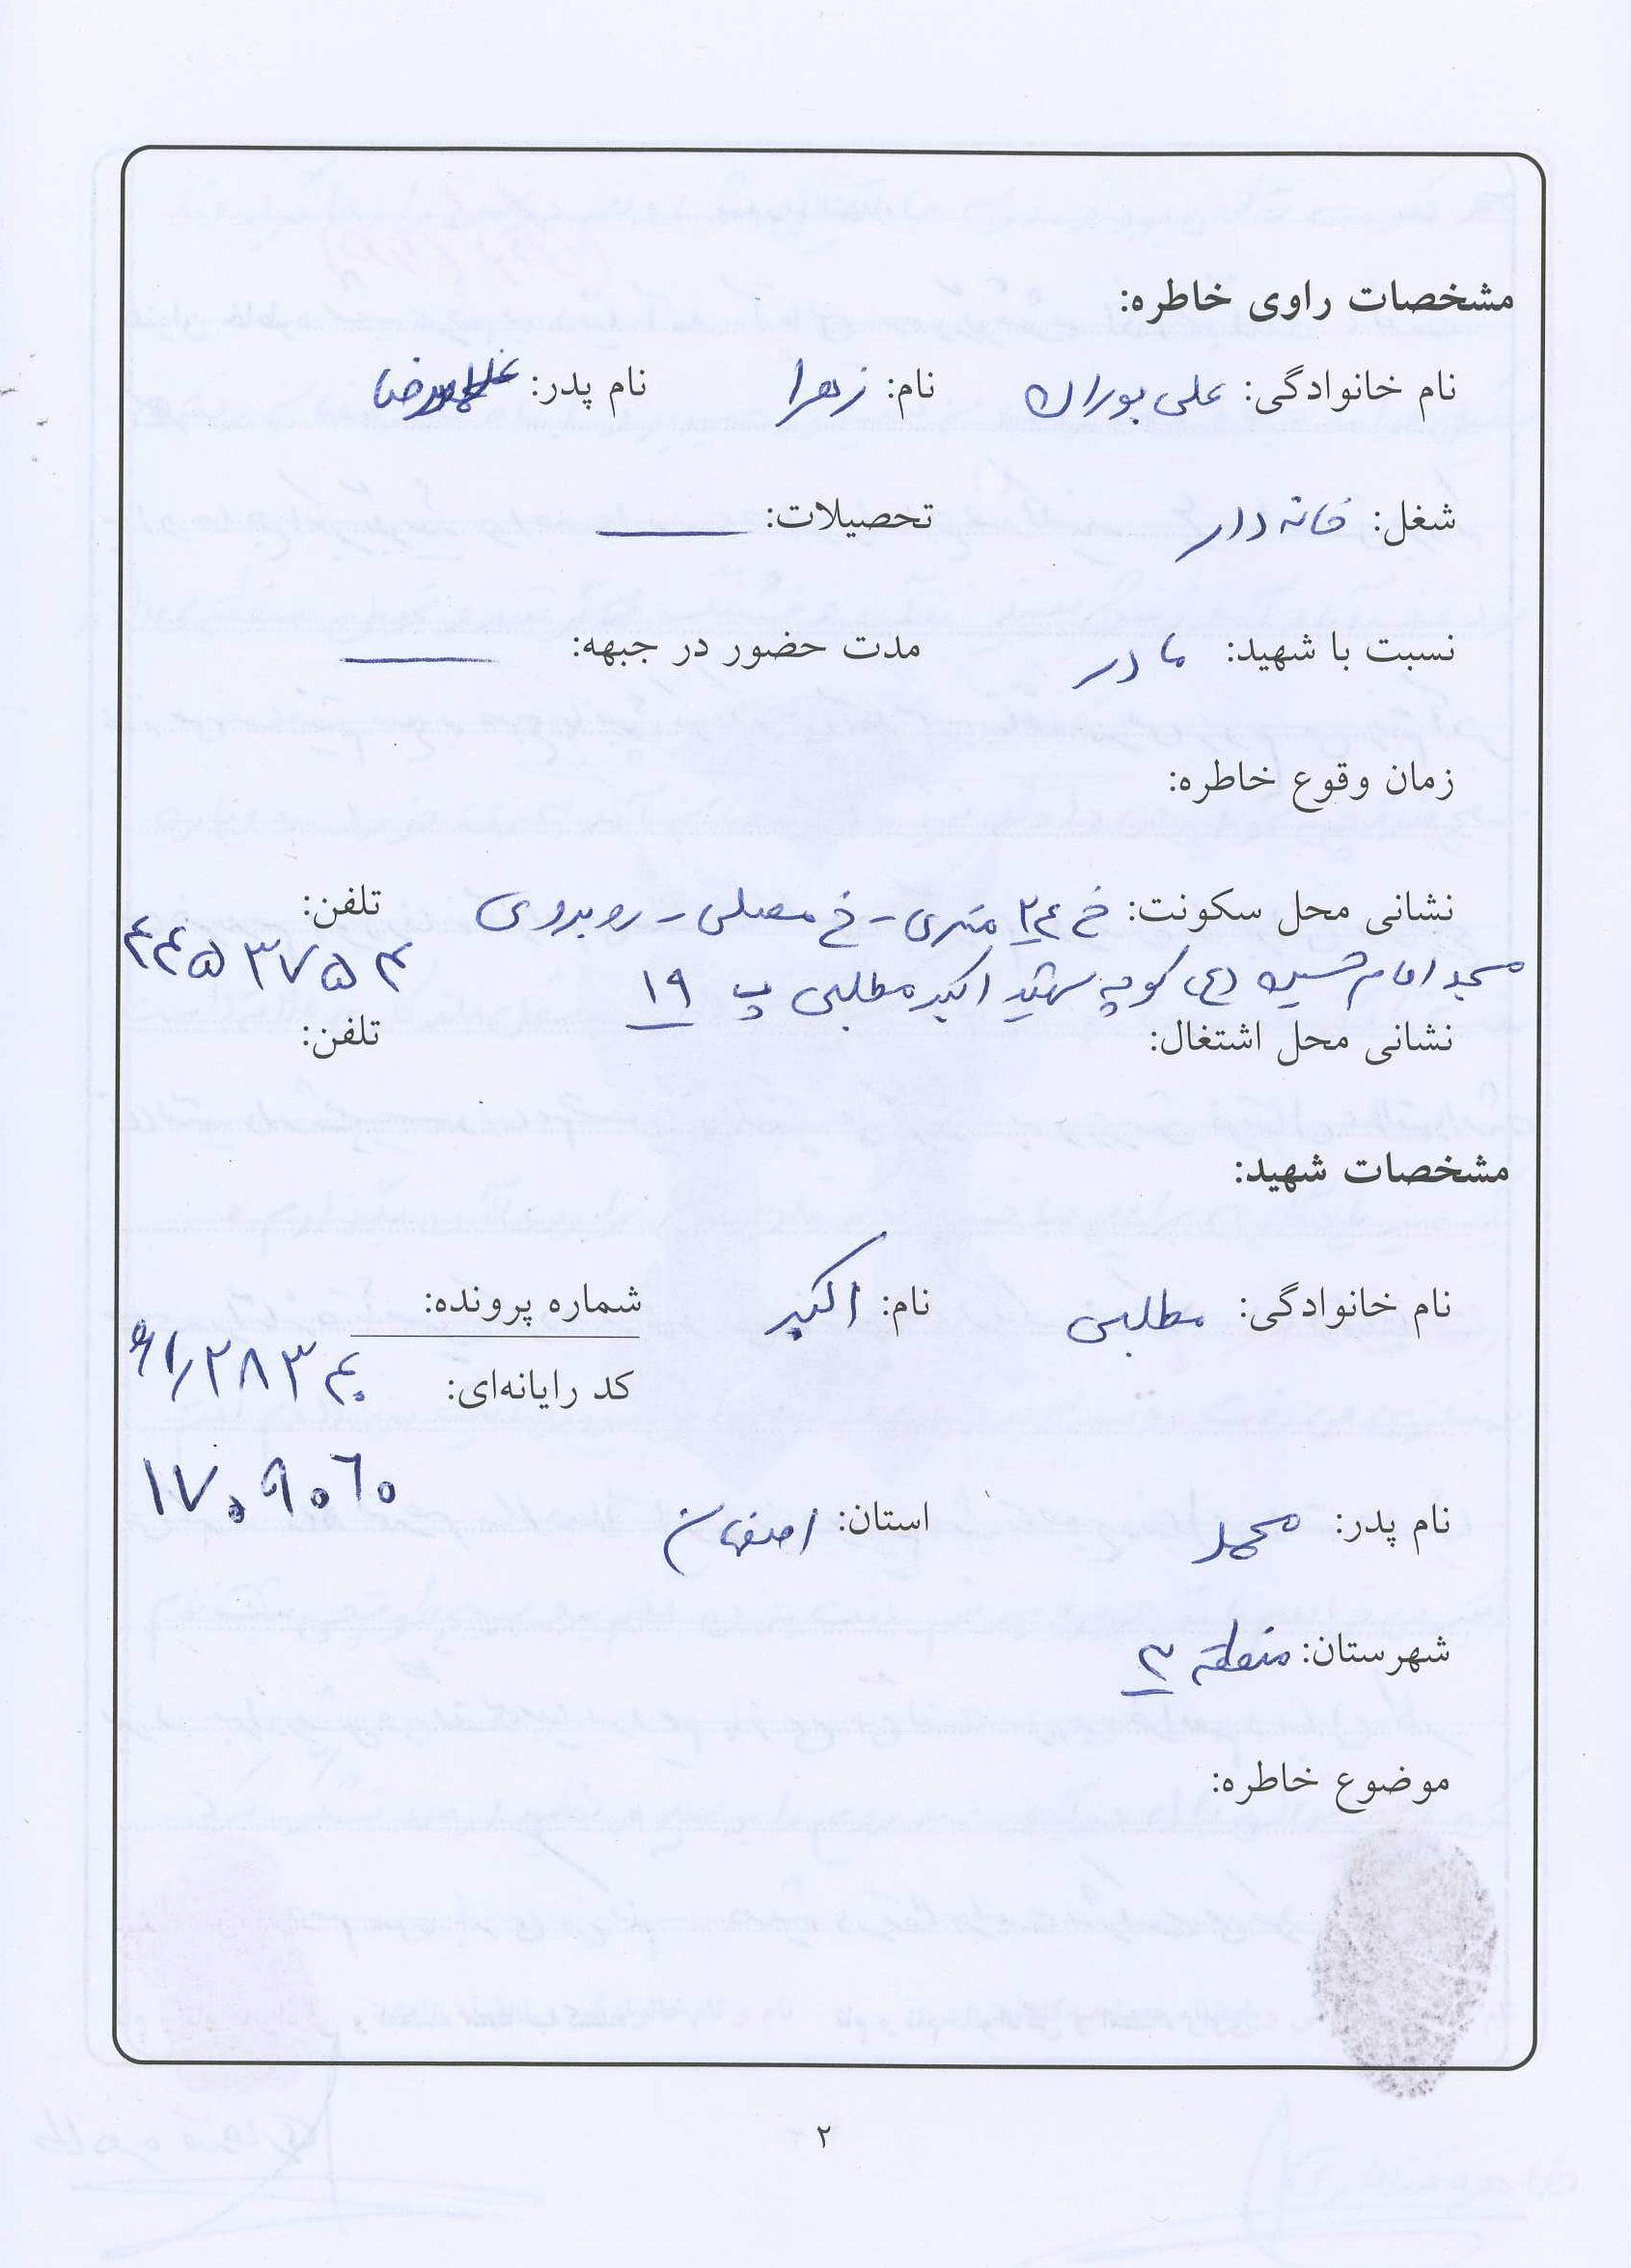 مشخصات راوی خاطره:
نام خانوادگی: علی بوران نام: زهرا نام پدر: غلامرضا
شغل: خانه دار تحصیلات: ــــــ
نسبت با شهید: مادر مدت حضور در جبهه: ــــــ
زمان وقوع خاطره:
نشانی محل سکونت: خ ۲۴ متری - خ مصلی - روبروی تلفن:
مسجد امام حسین (ع) کوچه شهید اکبر مطلبی پ ۱۹ ۴۴۵۳۷۵۴
نشانی محل اشتغال: تلفن:
مشخصات شهید:
نام خانوادگی: مطلبی نام: اکبر شماره پرونده:
کد رایانه‌ای:
نام پدر: محمد استان: اصفهان ۱۷۰۹۰۶۰
شهرستان: منطقه ۳
موضوع خاطره:
۲